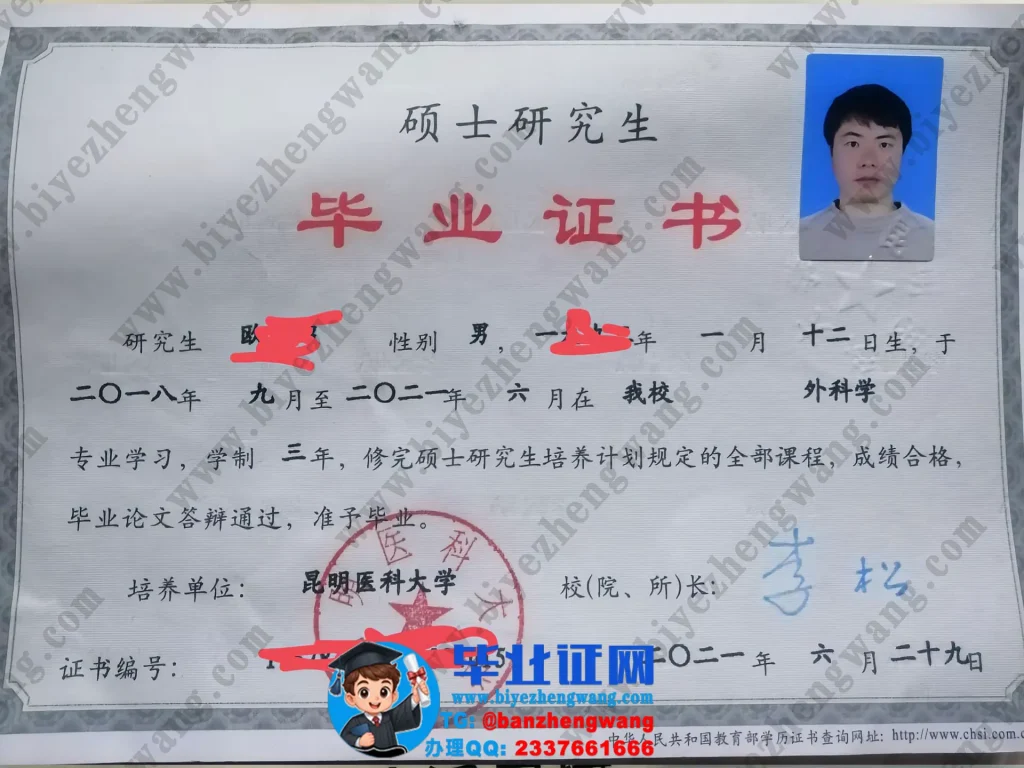 硕士研究生
毕业证书
研究生 性别 男， 年 一 月 十二 日生，于
二〇一八年 九 月至 二〇二一年 六 月在 我校 外科学
专业学习，学制 三年，修完硕士研究生培养计划规定的全部课程，成绩合格，
毕业论文答辩通过，准予毕业。
医科大
培养单位： 昆明医科大学 校(院、所)长： 李松
证书编号： 二〇二一 年 六 月 二十九日
毕业证网
www.biyezhengwang.com
TG: @banzhengwang
办理QQ: 2337661666
中华人民共和国教育部学历证书查询网址: http://www.chsi.com.c
www.biyezhengwang.com